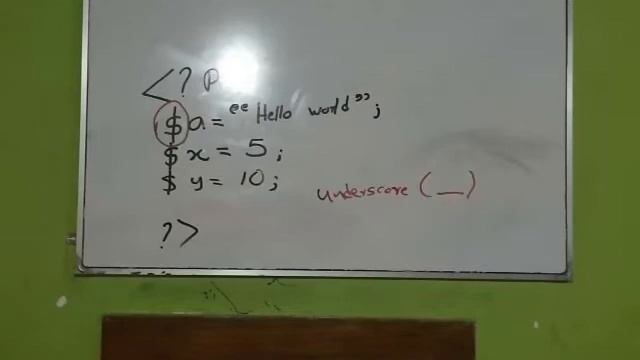 <? P
$ a = "Hello world";
$ x = 5;
$ y = 10;
underscore (_)
?>